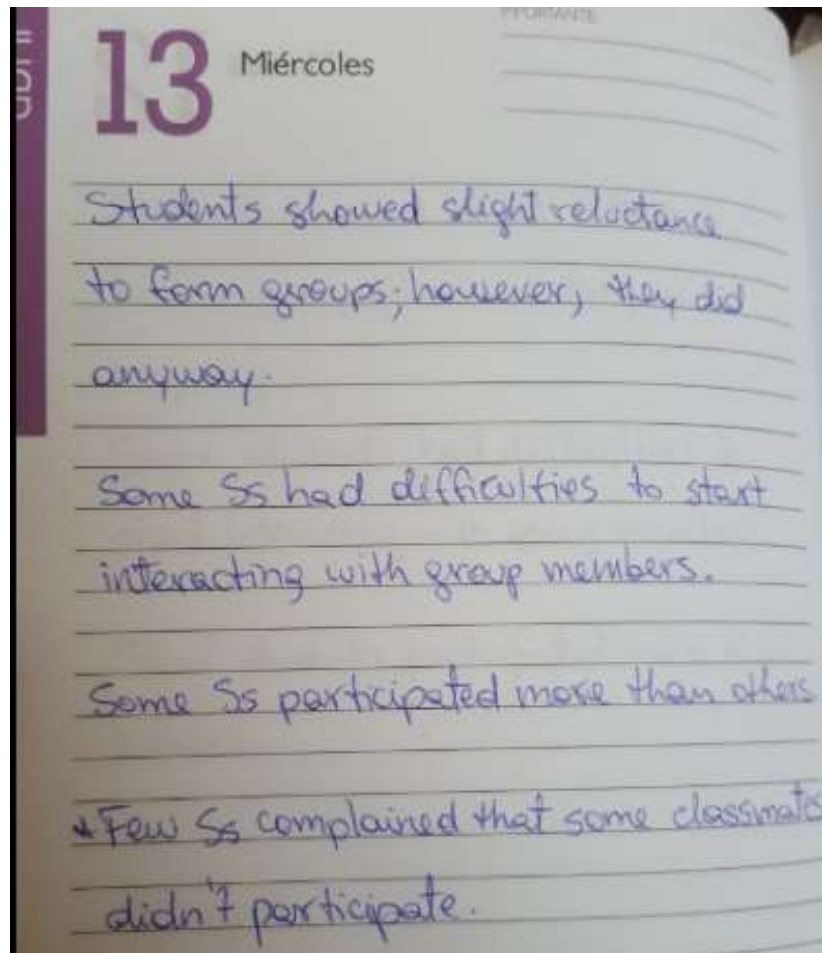 abril
IMPORTANTE
13 Miércoles
Students showed slight reluctance
to form groups; however, they did
anyway.
Some Ss had difficulties to start
interacting with group members.
Some Ss participated more than others
* Few Ss complained that some classmates
didn't participate.